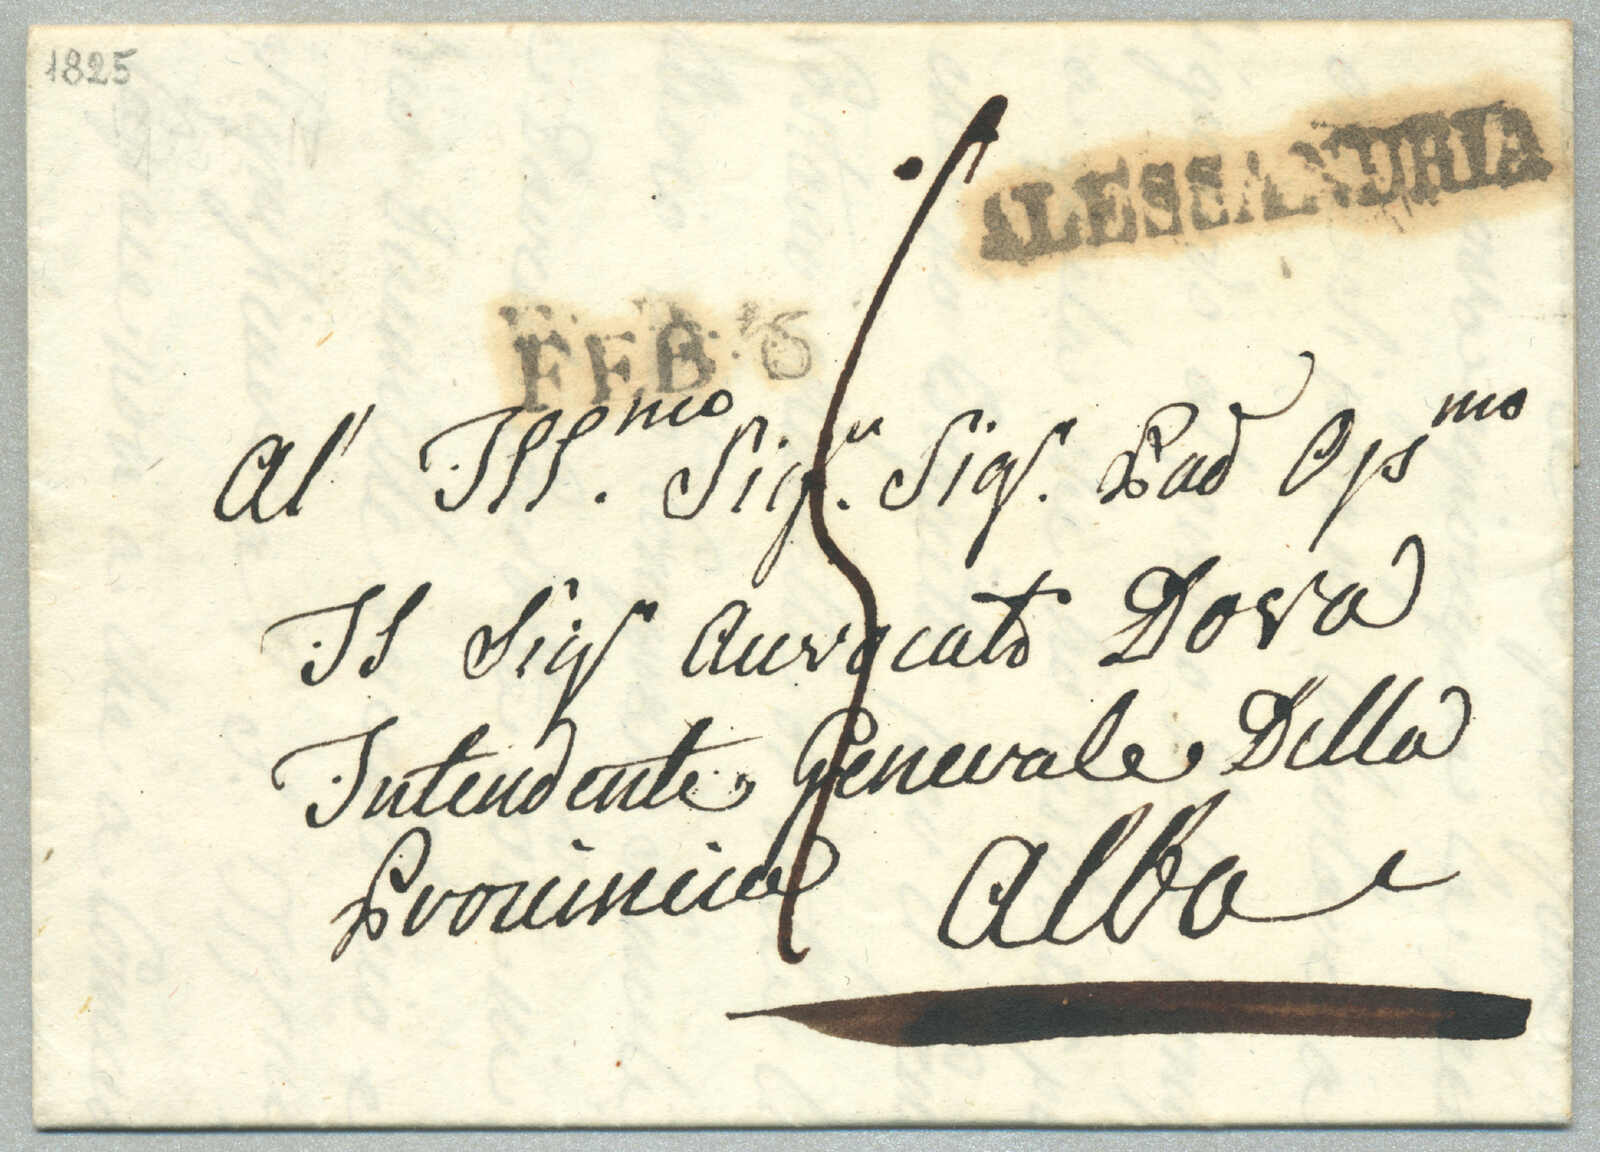 1825
ALESSANDRIA
FEB 6
Al' Ill.mo Sigr. Sigr. Pad Ossmo
Il Sigr Auvocato Dova
Intendente Generale Della
Provinicia Alba